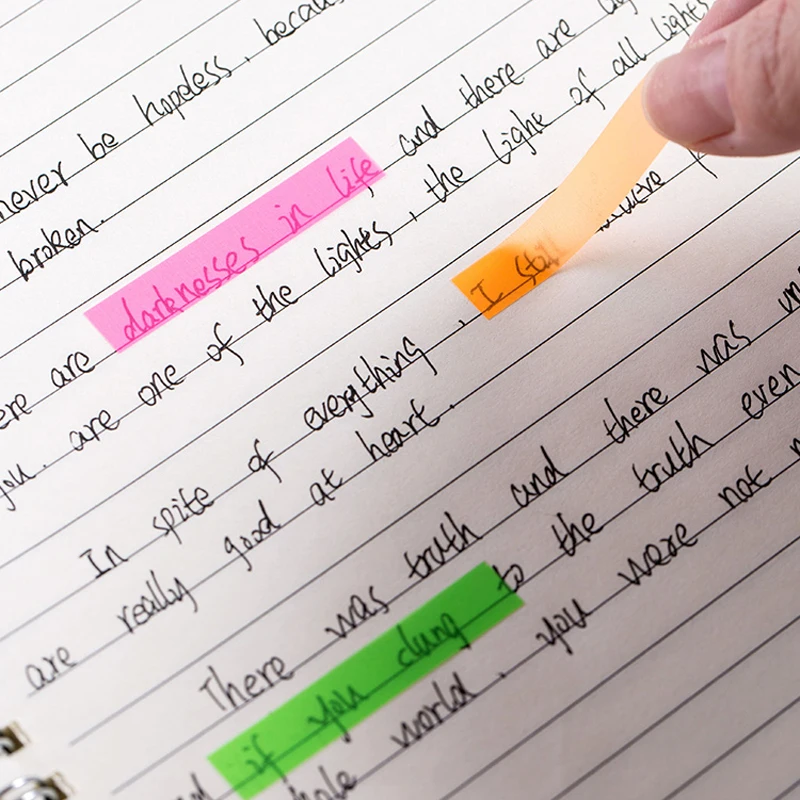 never be hopeless, because
broken. and there are
there are darknesses in life the light of all lights
you are one of the lights,
In spite of everything, I still believe
are really good at heart.
There was truth and there was
and if you clung to the truth even
whole world, you were not